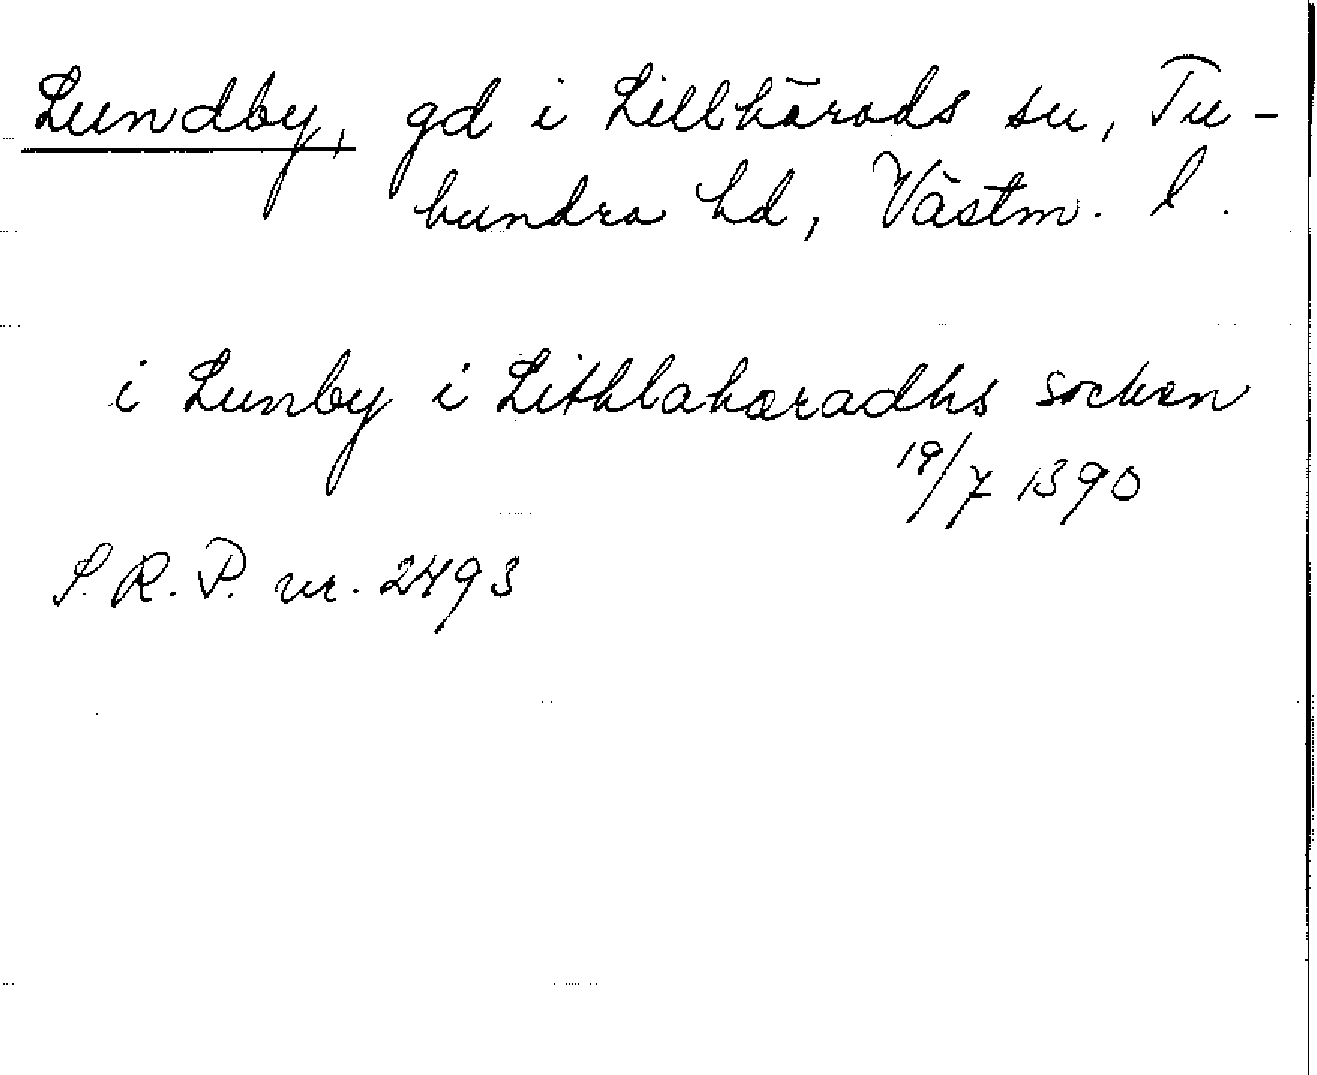 Lundby, gd i Lillhärads sn, Tu-
hundra hd, Västm. l.
i Lunby i Lithlahæradhs sockæn
19/7 1390
S.R.P. nr. 2493